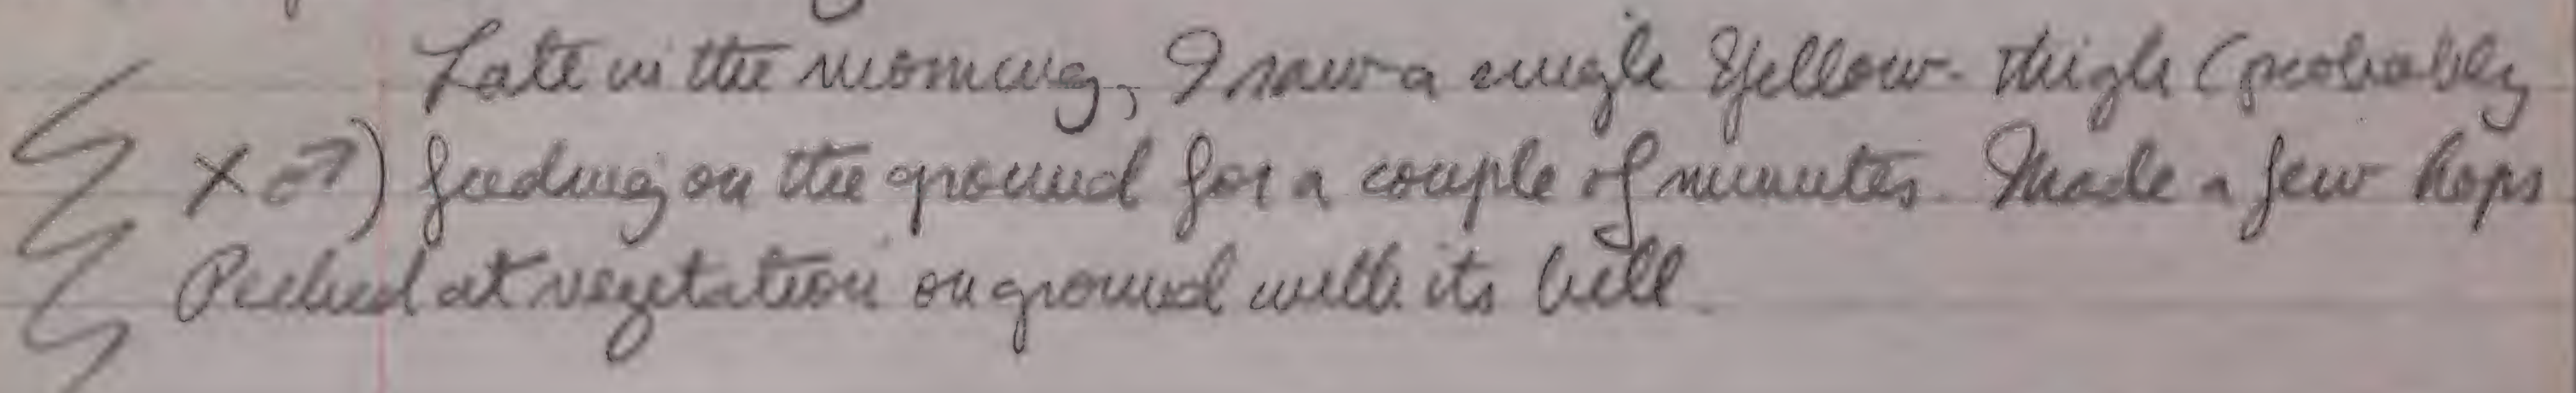 Late in the morning, I saw a single Yellow-thigh (probably
x ♂) feeding on the ground for a couple of minutes. Made a few hops
Pecked at vegetation on ground with its bill.